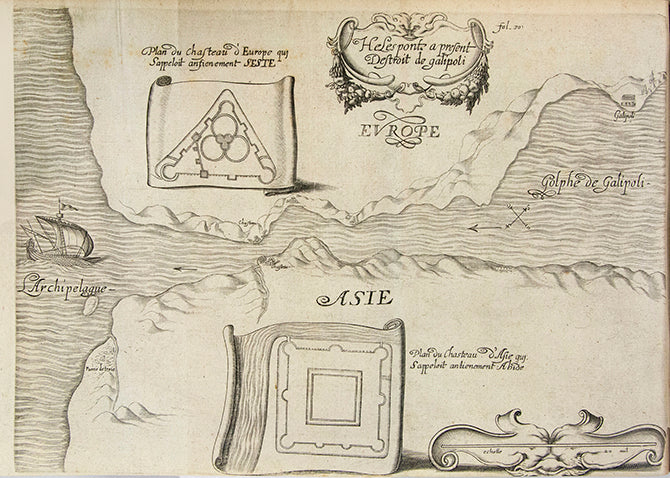 fol. 20
Helespont a present
Destroit de galipoli
Plan du Chasteau d'Europe qui
S'appeloit ansienement SESTE
EVROPE
Galipoli
Golphe de Galipoli
L'Archipelague
ASIE
Plan du Chasteau d'Asie qui
S'appeloit antienement Abide
echelle